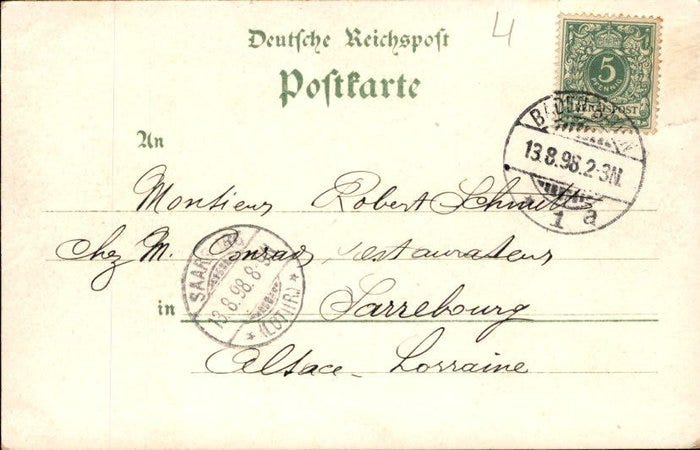 4
Deutsche Reichspost
Postkarte
5
PFENNIG
REICHSPOST
13.8.98.2-3N.
1 a
An
Monsieur Robert Schmitt
chez M. Conrad restaurateur
in Sarrebourg
Alsace-Lorraine
13.8.98.8-
* (LOTHR.) *